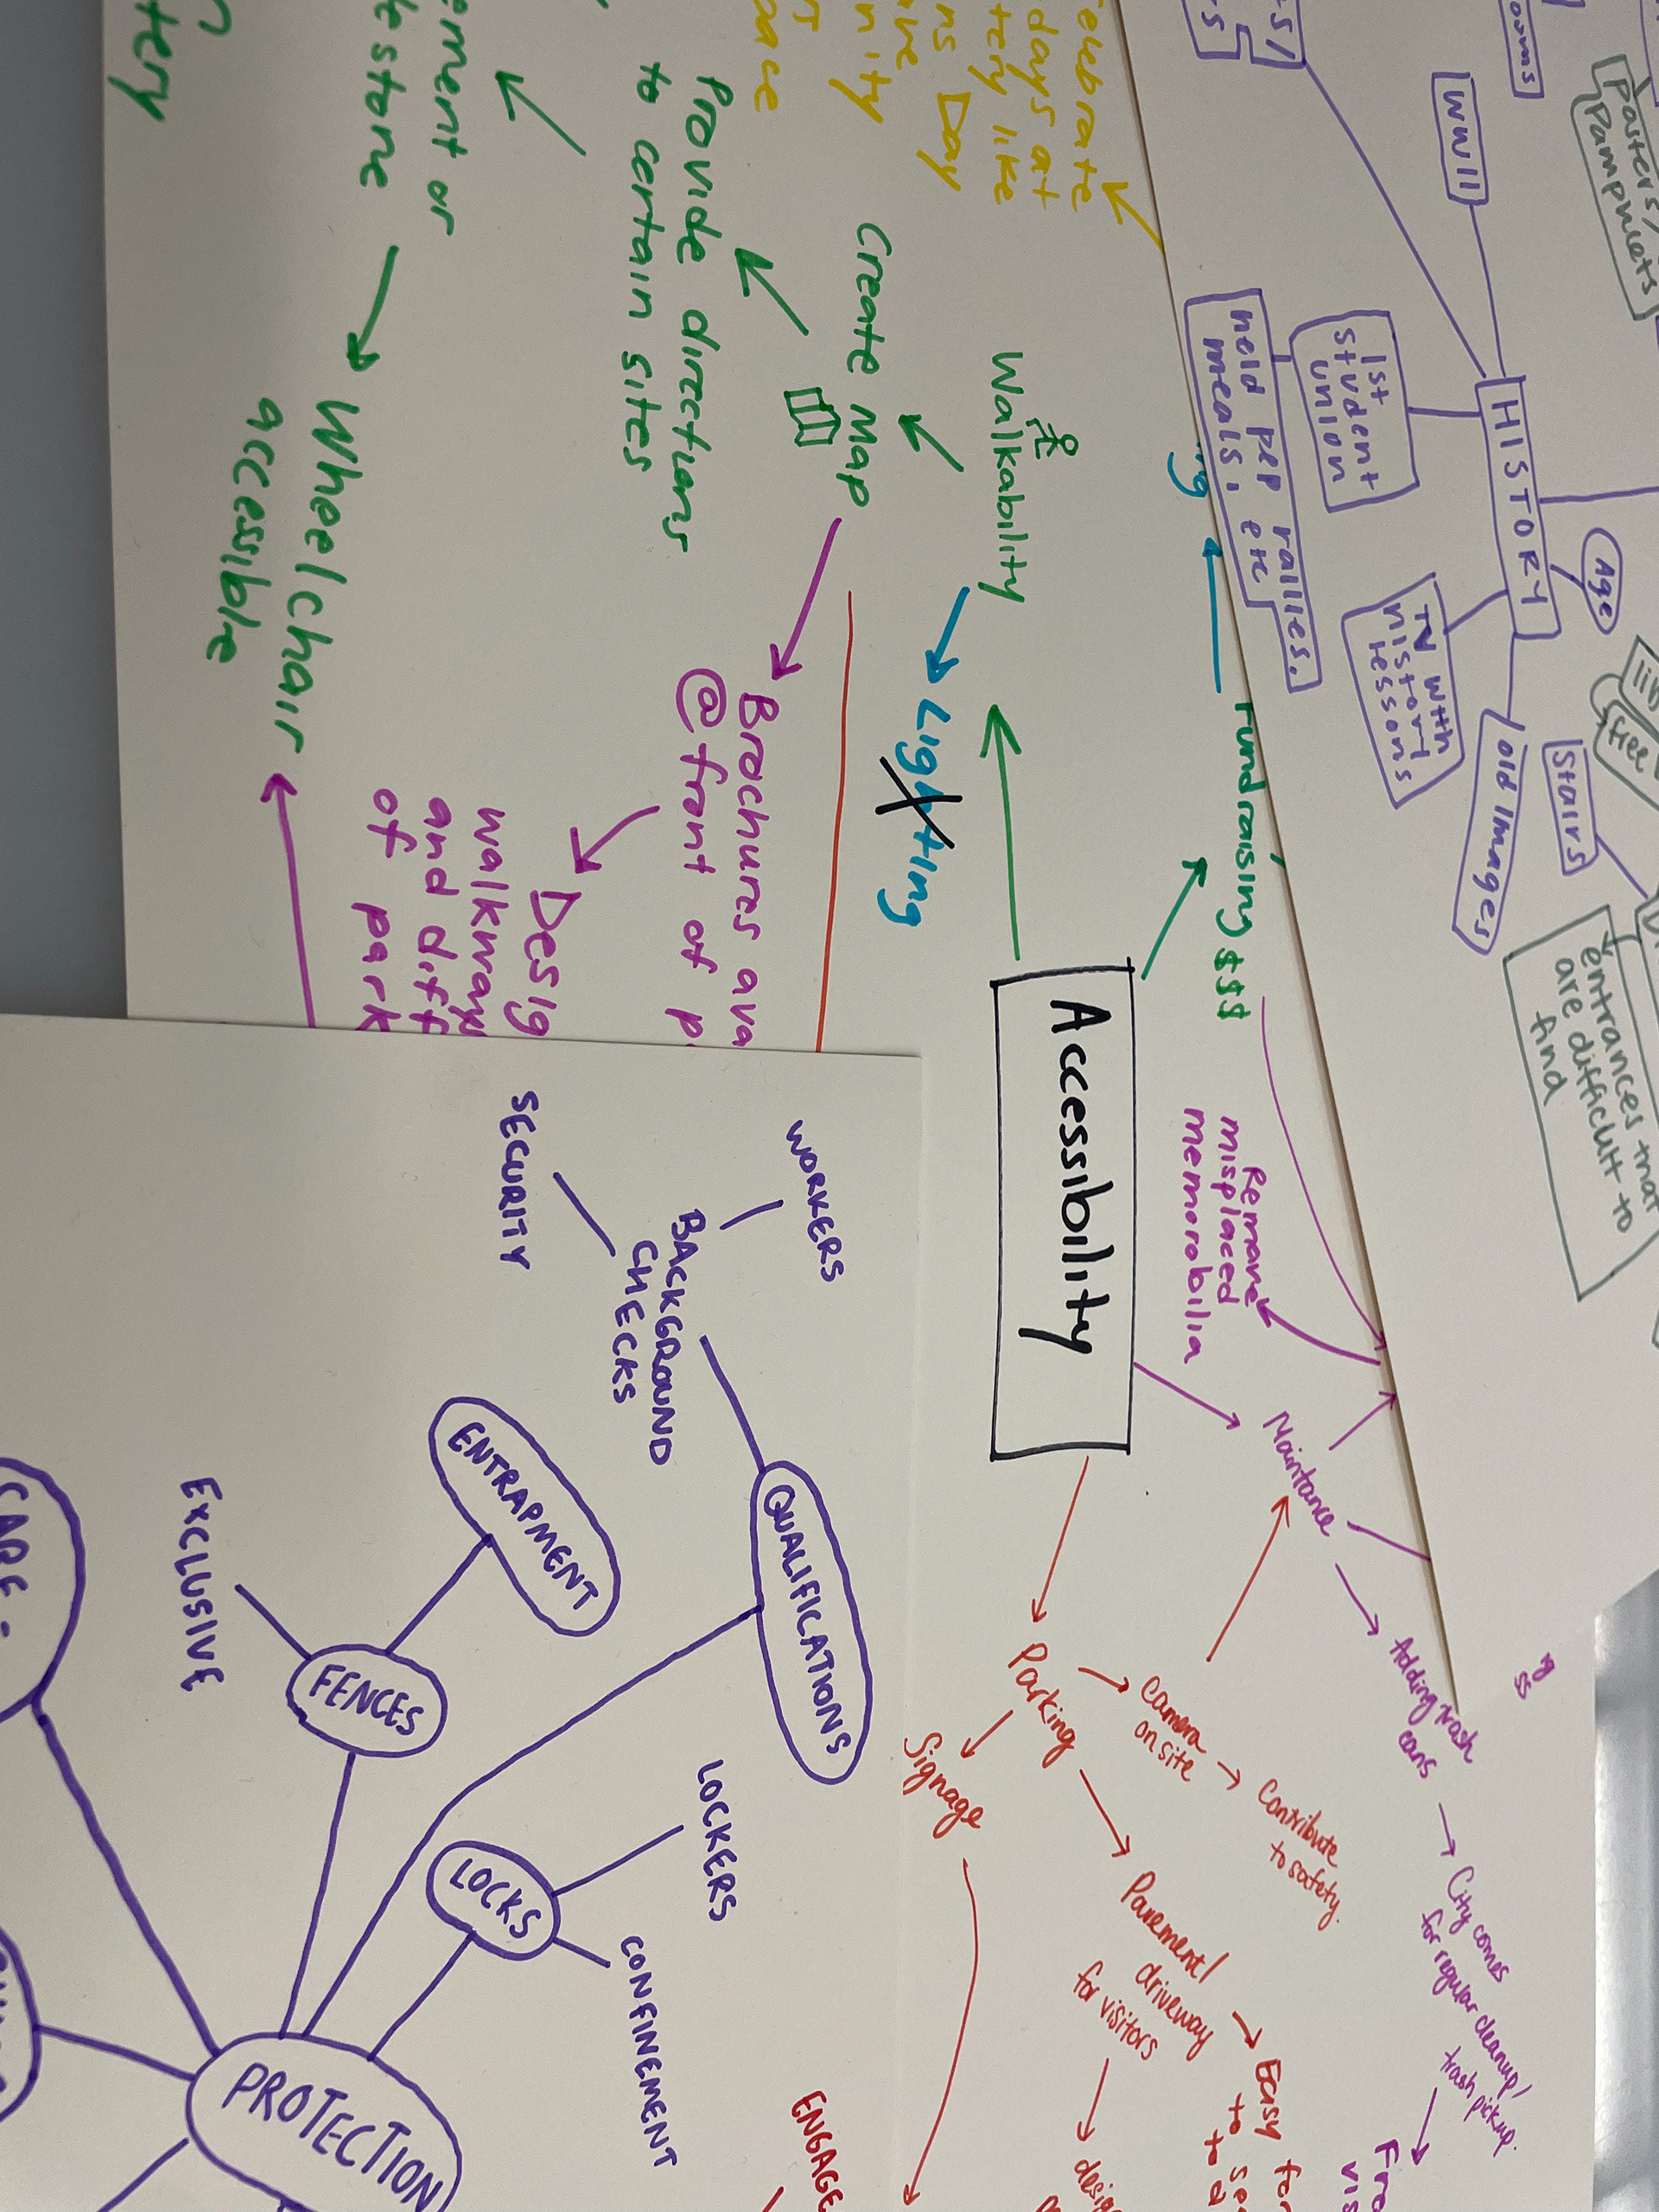 posters/
Pamphlets
WWII
HISTORY
1st
student
union
held pep rallies.
meals, etc
Age
TV with
history
lessons
old Images
Stairs
tree
entrances that
are difficult to
find
celebrate
days at
like
Day
Provide directions
to certain sites
Create Map
Walkability
Lighting
Fundraising $$$
Accessibility
Remove
misplaced
memorobilia
Maintance
Adding trash
cans
City comes
for regular cleanup/
trash pickup.
Parking
Camera
on site
Contribute
to safety.
Signage
Pavement/
driveway
for visitors
Easy for
Brochures ava
@ front of p
Desig
walkway
and diff
of park
or
Wheelchair
accessible
WORKERS
BACKGROUND
CHECKS
SECURITY
QUALIFICATIONS
ENTRAPMENT
EXCLUSIVE
FENCES
LOCKERS
LOCKS
CONFINEMENT
PROTECTION
ENGAGE